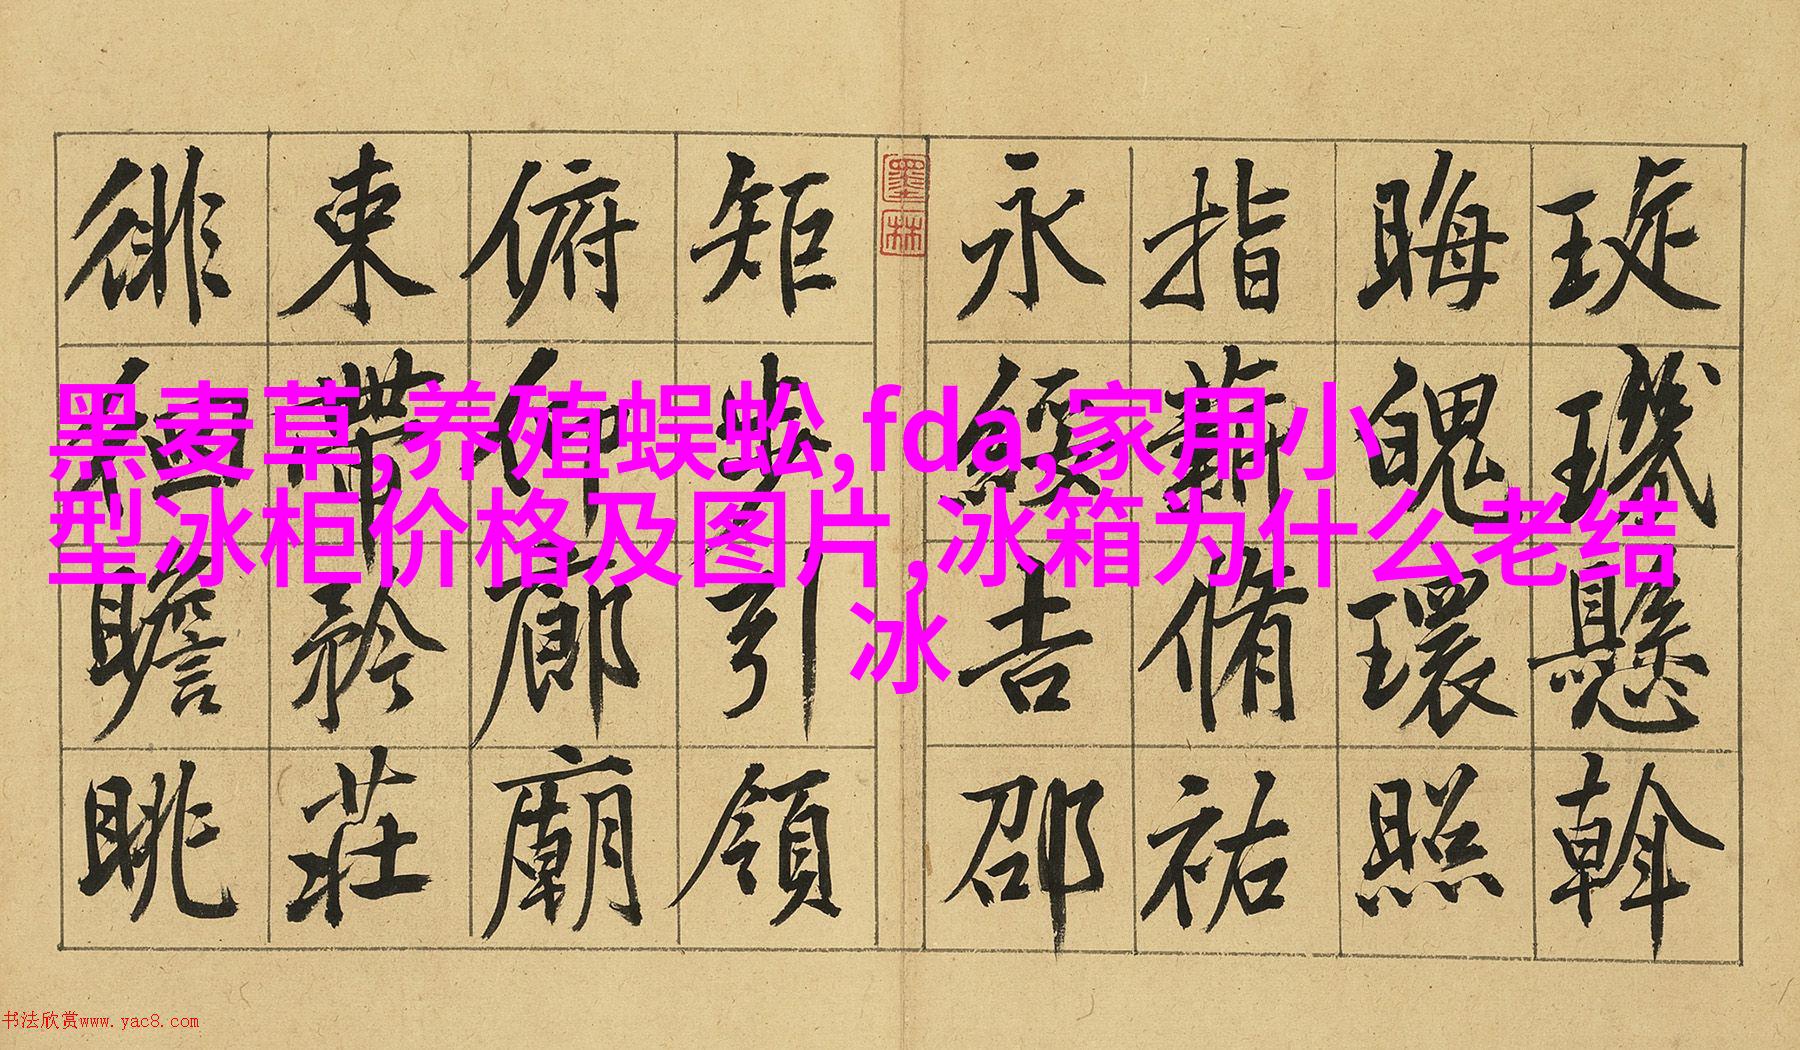 琁璣懸斡
晦魄環照
指薪脩祐
永綏吉邵
墨林
矩步引領
俯仰廊廟
束帶矜莊
徘徊瞻眺
黑麦草,养殖蜈蚣,fda,家用小
型冰柜价格及图片,冰箱为什么老结
冰
书法欣赏www.yac8.com